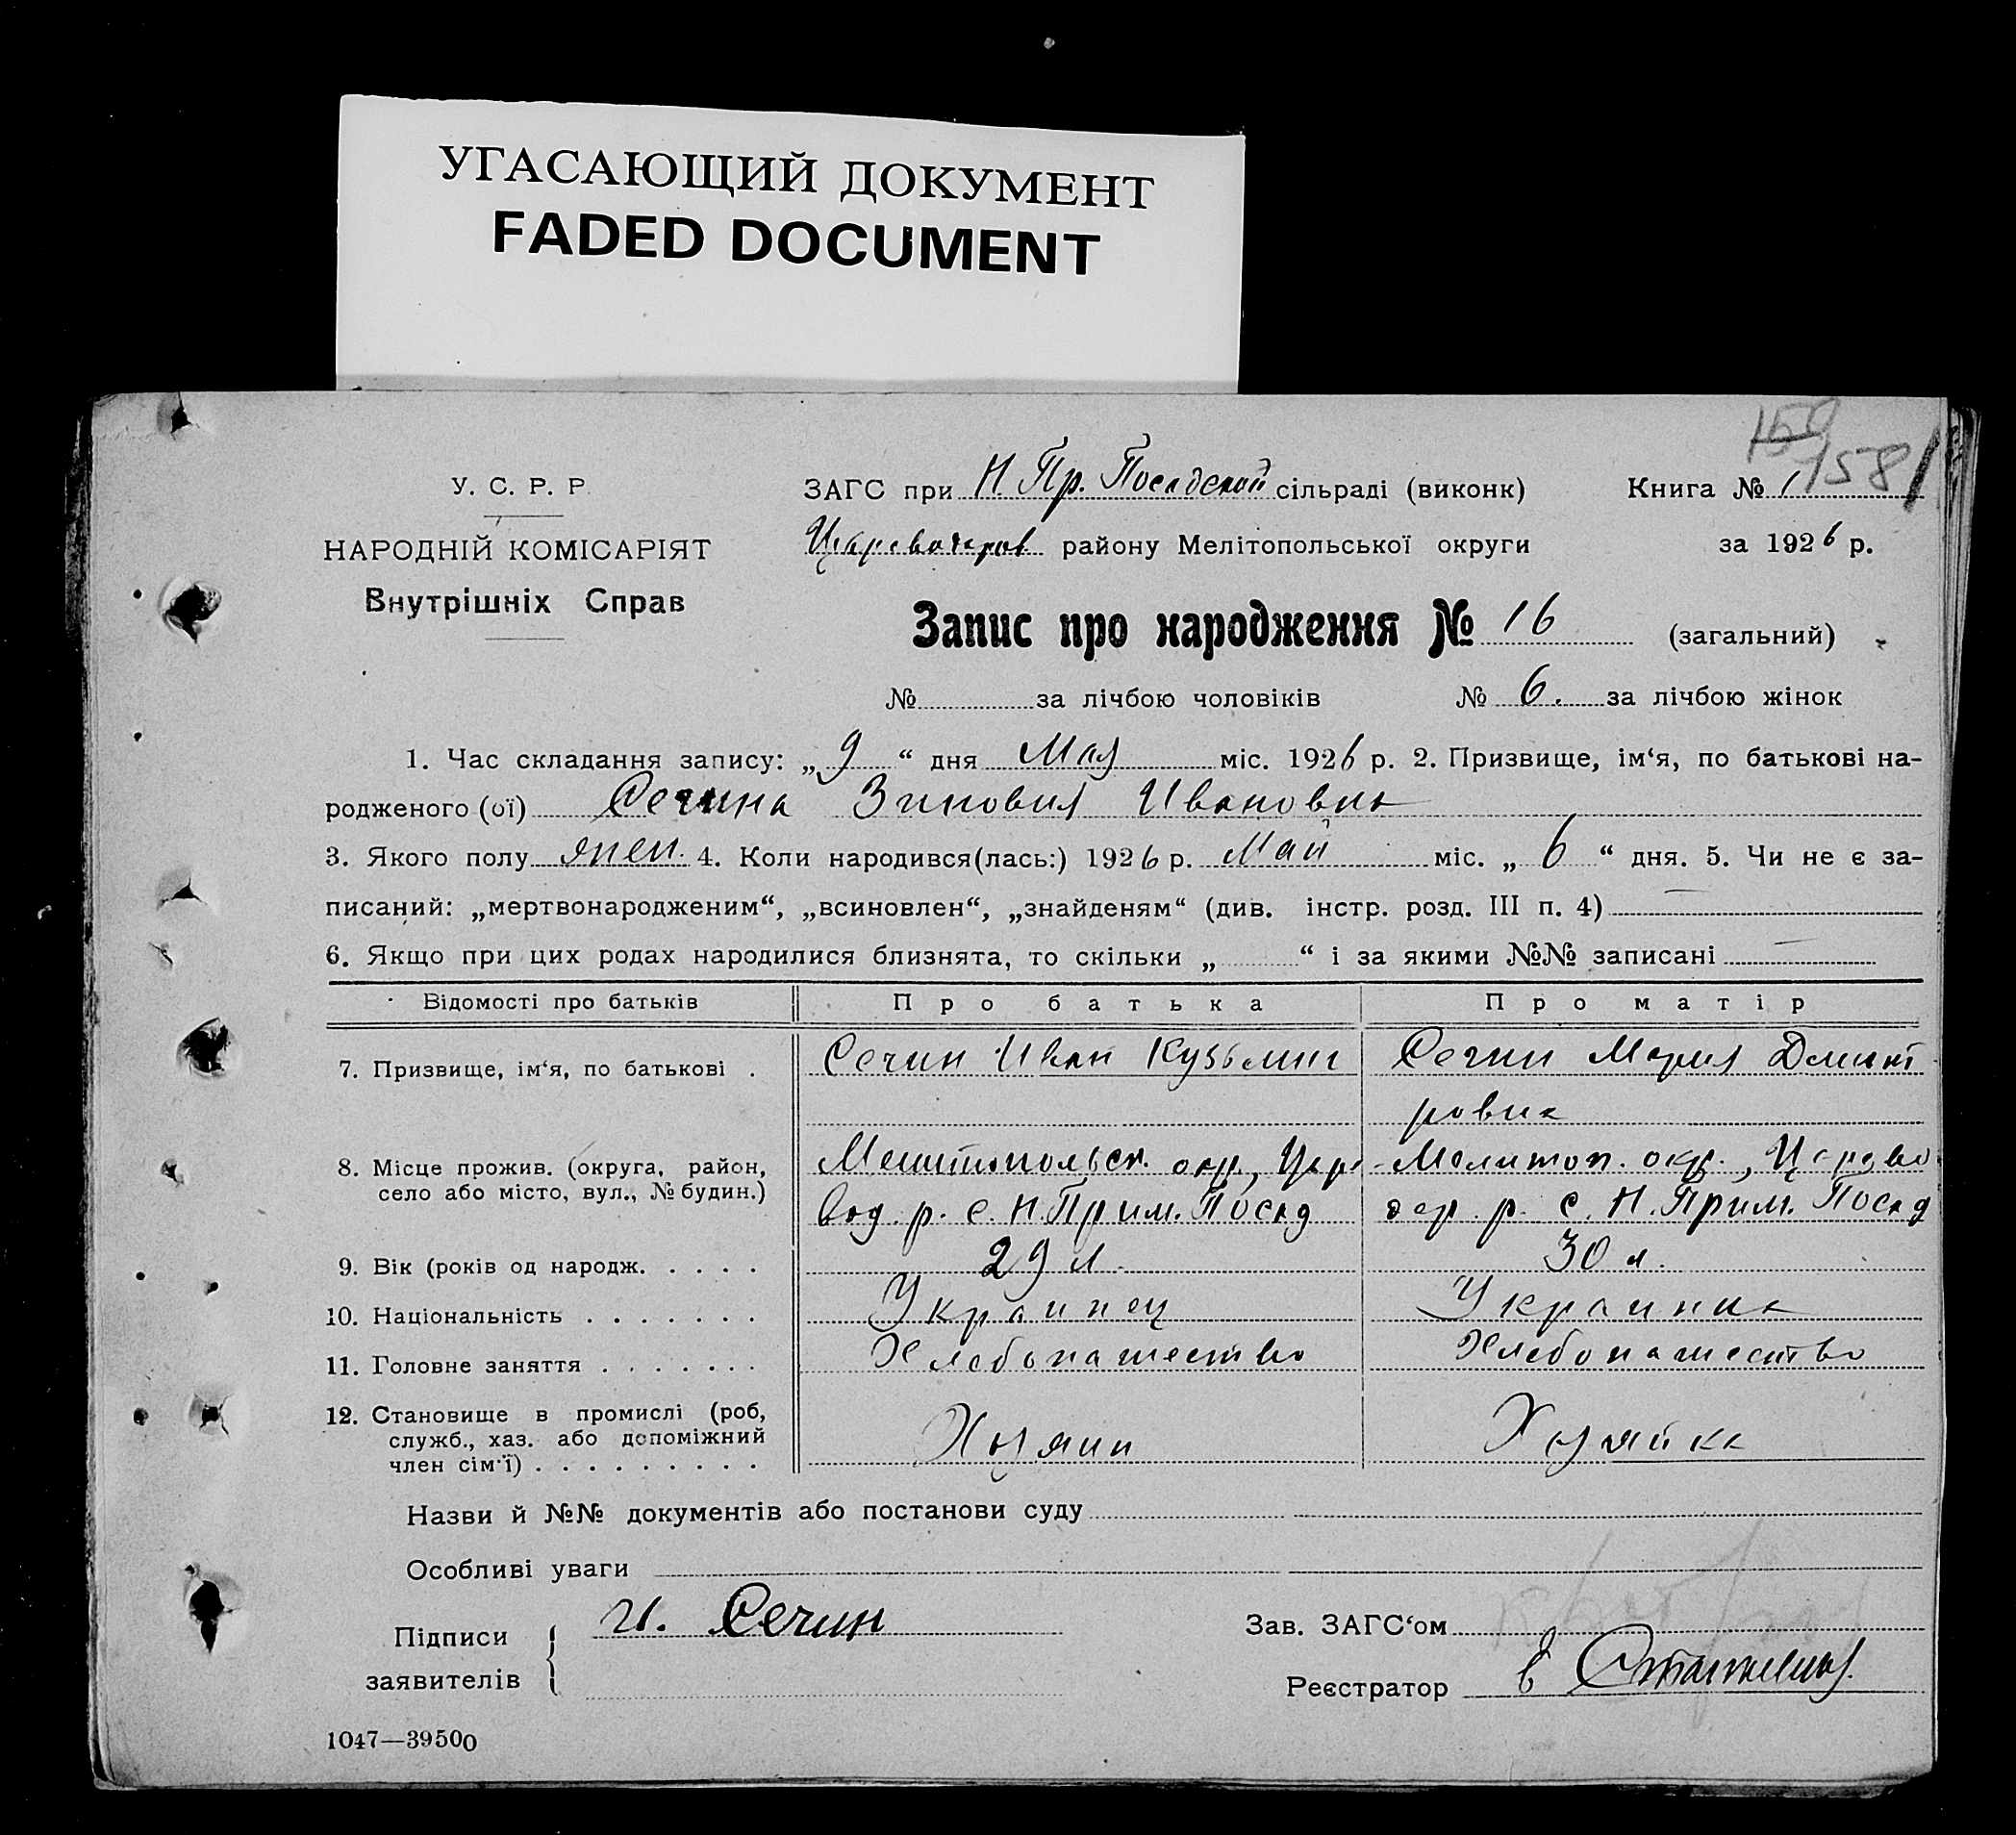 УГАСАЮЩИЙ ДОКУМЕНТ
FADED DOCUMENT
150
158
У. С. Р. Р.
НАРОДНІЙ КОМІСАРІЯТ
Внутрішніх Справ
ЗАГС при Н. Пр. Посадской сільраді (виконк) Книга № 1
района Мелітопольської округи за 1926 р.
Запис про народження № 16 (загальний)
№ за лічбою чоловіків № 6. за лічбою жінок
1. Час складання запису: „9“ дня Мая міс. 1926 р. 2. Призвище, ім‘я, по батькові на-
родженого (ої) Сечина Зиновия Ивановна
3. Якого полу жен. 4. Коли народився(лась:) 1926 р. Май міс. „6“ дня. 5. Чи не є за-
писаний: „мертвонародженим“, „всиновлен“, „знайденям“ (див. інстр. розд. III п. 4)
6. Якщо при цих родах народилися близнята, то скільки „ “ і за якими №№ записані
Відомості про батьків Про батька Про матір
7. Призвище, ім‘я, по батькові . Сечин Иван Кузьмич Сечин Мария Дмит
ровна
8. Місце прожив. (округа, район, село або місто, вул., № будин.) Мелитопольск. окр., Царе Мелитоп. окр., Царево
вод. р. с. Н. Прим. Посад дар. р. с. Н. Прим. Посад
9. Вік (років од народж. . . . . 29 л. 30 л.
10. Національність . . . . . . . Украинец Украинка
11. Головне заняття . . . . . . . Хлебопашество Хлебопашество
12. Становище в промислі (роб, служб., хаз. або допоміжний член сім‘ї) . . . . . . . . . Хозяин Хозяйка
Назви й №№ документів або постанови суду
Особливі уваги
Підписи заявителів И. Сечин
Зав. ЗАГС‘ом
Реєстратор
1047—39500